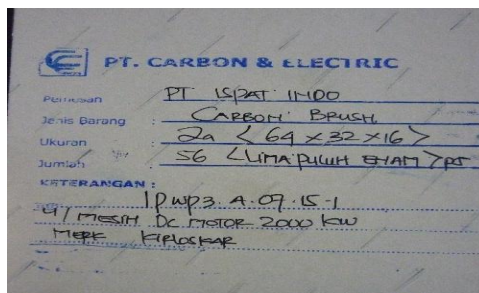 PT. CARBON & ELECTRIC
Pemesan PT ISPAT INDO
Jenis Barang : CARBON BRUSH
Ukuran : 2a <64 x 32 x 16>
Jumlah : 56 <LIMA PULUH ENAM> pcs
KETERANGAN :
A.07.15-1
U/ MESIN DC MOTOR 2000 KW
MERK KIRLOSKAR